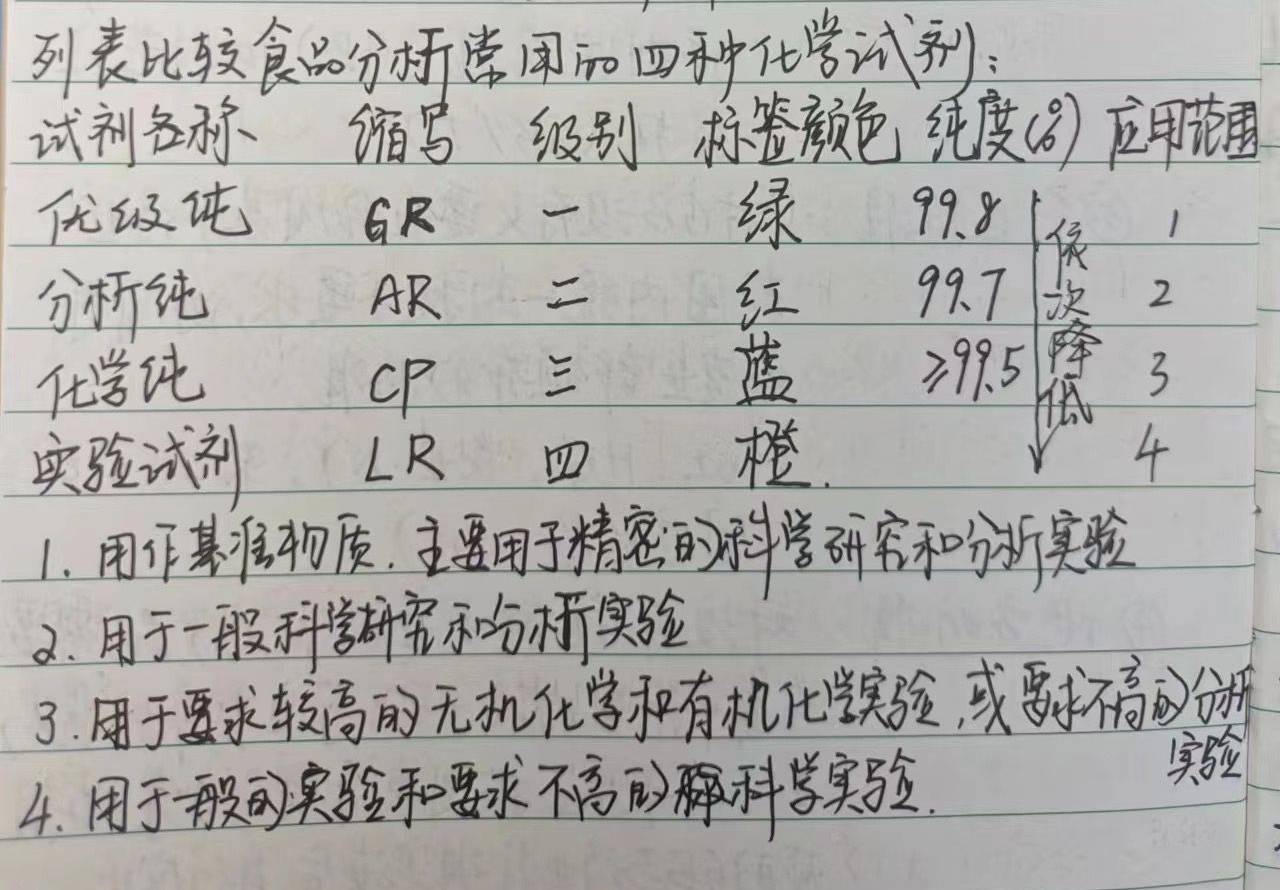 列表比较食品分析常用的四种化学试剂:
试剂名称 缩写 级别 标签颜色 纯度(%) 应用范围
优级纯 GR 一 绿 99.8 1
分析纯 AR 二 红 99.7 2
化学纯 CP 三 蓝 ≥99.5 3
实验试剂 LR 四 橙. 4
依次降低
1. 用作基准物质.主要用于精密的科学研究和分析实验
2. 用于一般科学研究和分析实验
3.用于要求较高的无机化学和有机化学实验,或要求不高的分析
实验
4.用于一般的实验和要求不高的科学实验.